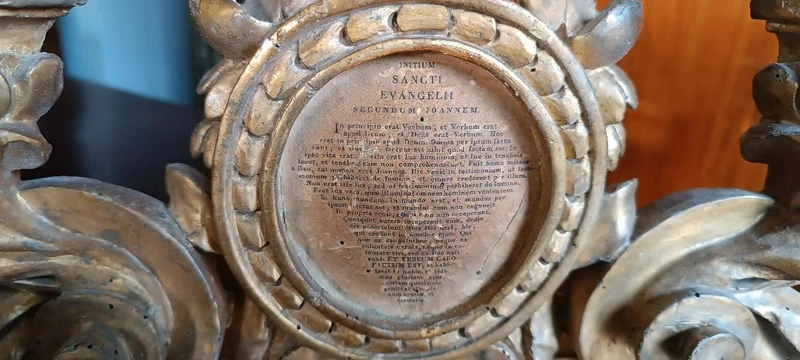 INITIUM
SANCTI
EVANGELII
SEGUNDUM JOANNEM.
In principio erat Verbum, et Verbum erat
apud Deum, et Deus erat Verbum. Hoc
erat in principio apud Deum. Omnia per ipsum facta
sunt, et sine factum est nihil quod factum est. In
ipso vita erat, vita erat lux hominum, et lux in tenebris
lucet, et tenebræ eam non comprehenderunt. Fuit homo missus
a Deo, cui nomen erat Joannes. Hic venit in testimonium, ut testi-
monium perhiberet de lumine, ut omnes crederent per illum.
Non erat ille lux, sed ut testimonium perhiberet de lumine.
Erat lux vera, quæ illuminat omnem hominem venientem
in hunc mundum. In mundo erat, et mundus per
ipsum factus est, et mundus eum non cognovit.
In propria venit, et sui eum non receperunt.
Quotquot autem receperunt eum, dedit
eis potestatem filios Dei fieri, his,
qui credunt in nomine ejus. Qui
non ex sanguinibus, neque ex
voluntate carnis, neque ex vo-
luntate viri, sed ex Deo nati
sunt. ET VERBUM CARO
FACTUM EST, et habi-
tavit in nobis, et vidi-
mus gloriam ejus,
gloriam quasi